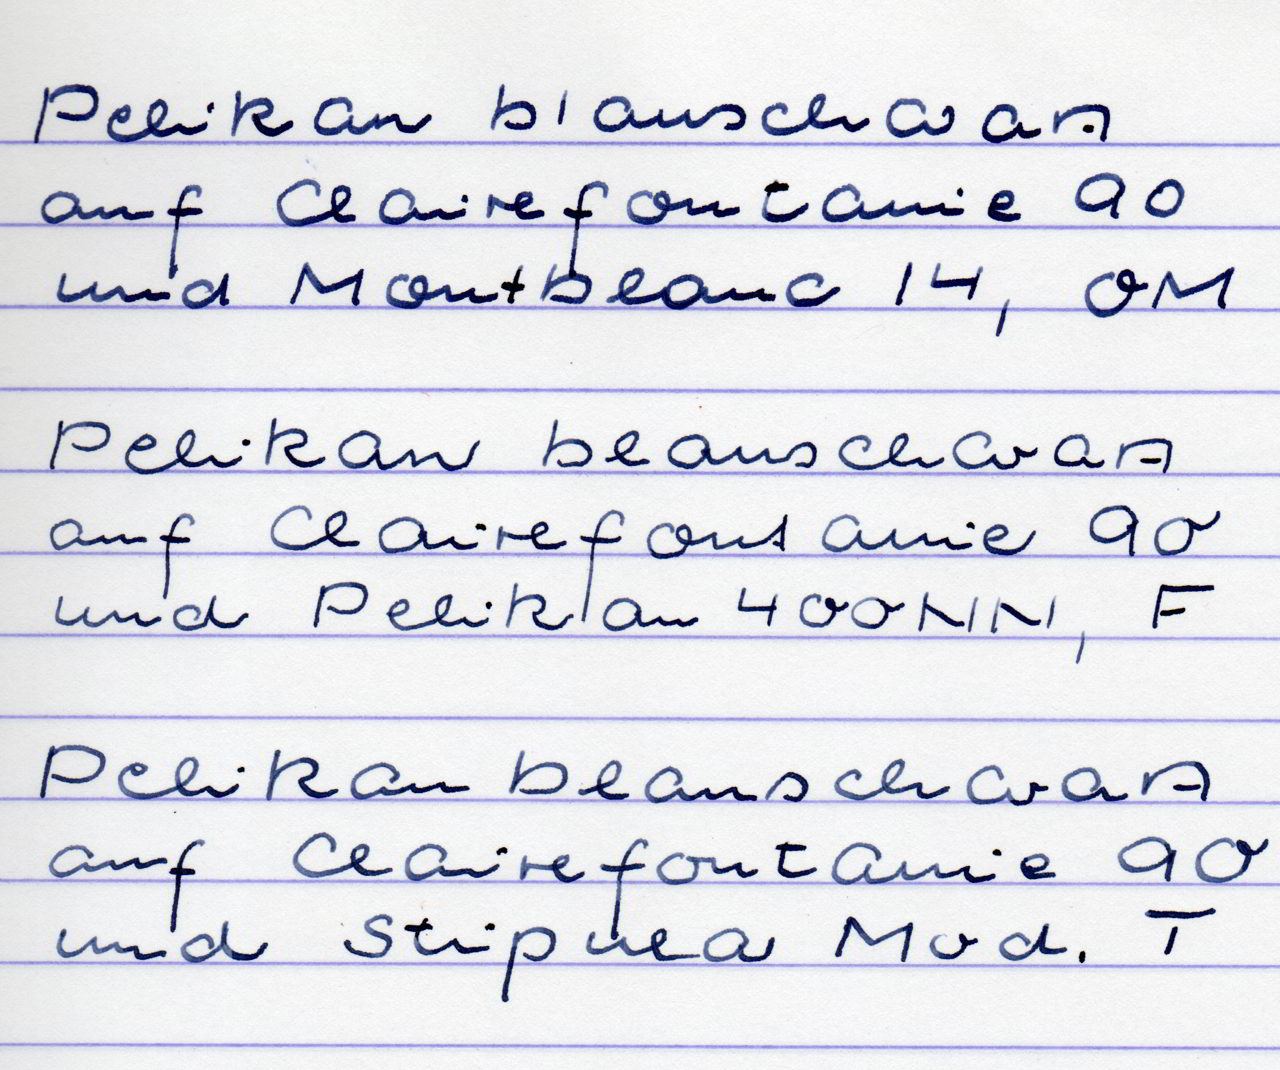 Pelikan blauschwarz
auf Clairefontaine 90
und Montblanc 14, OM
Pelikan blauschwarz
auf Clairefontaine 90
und Pelikan 400NN, F
Pelikan blauschwarz
auf Clairefontaine 90
und Stipula Mod. T